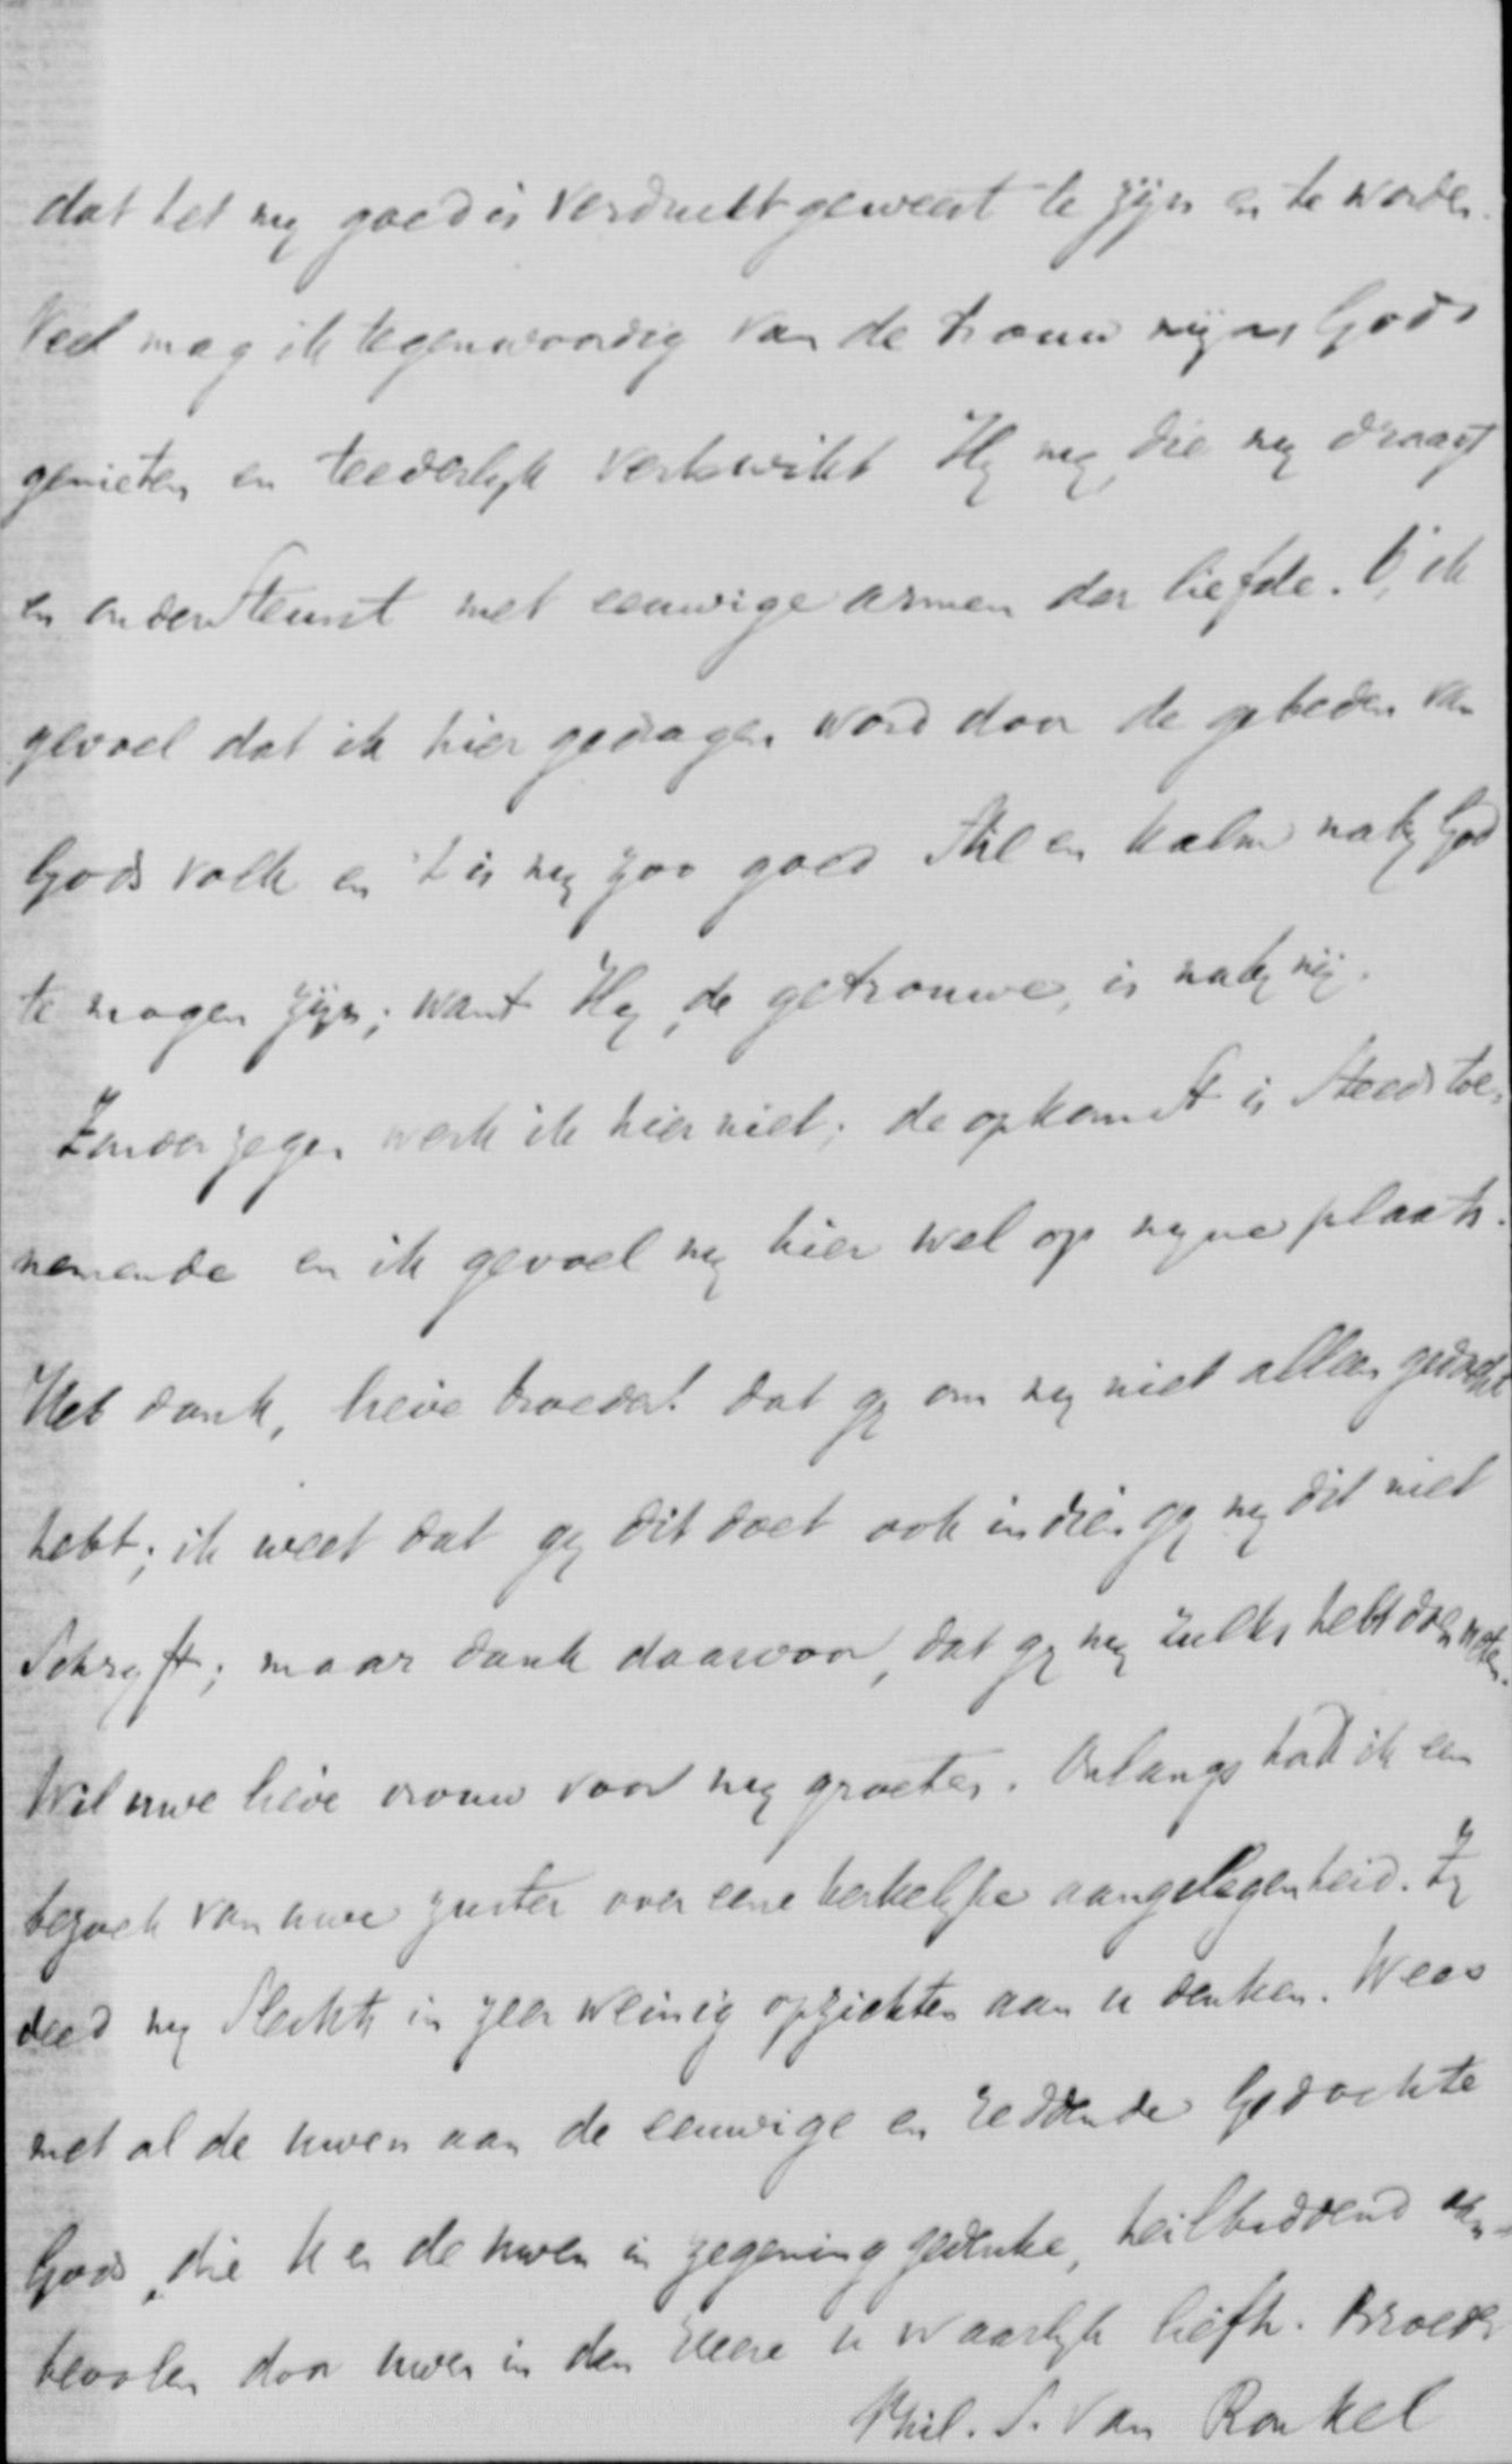 dat het my goed is verdrukt geweest te zijn en te worden.
Veel mag ik tegenwoordig van de trouw mijns Gods
genieten en teederlyk verkwikt Hy my, die my draagt
en ondersteunt met eeuwige armen der liefde. O, ik
gevoel dat ik hier gedragen word door de gebeden van
Gods volk en 't is my zoo goed stil en kalm naby God
te mogen zijn; want Hy, de getrouwe, is naby mij.
Zonder zegen werk ik hier niet; de opkomst is steeds toe-
nemende en ik gevoel my hier wel op myne plaats.
Heb dank, lieve broeder! dat gy om my niet alleen gedacht
hebt; ik weet dat gy dit doet ook indien gy my dit niet
schryft; maar dank daarvoor, dat gy my zulks hebt doen weten.
Wil uwe lieve vrouw voor my groeten. Onlangs had ik een
bezoek van uwe zuster over eene kerkelyke aangelegenheid. Zy
deed my slechts in zeer weinig opzichten aan u denken. Wees
met al de uwen aan de eeuwige en reddende Gedachte
Gods, die U en de uwen in zegening gedenke, heilbiddend aan-
bevolen door uwen in den Heere u waarlyk liefh. Broeder
Phil. S. van Ronkel